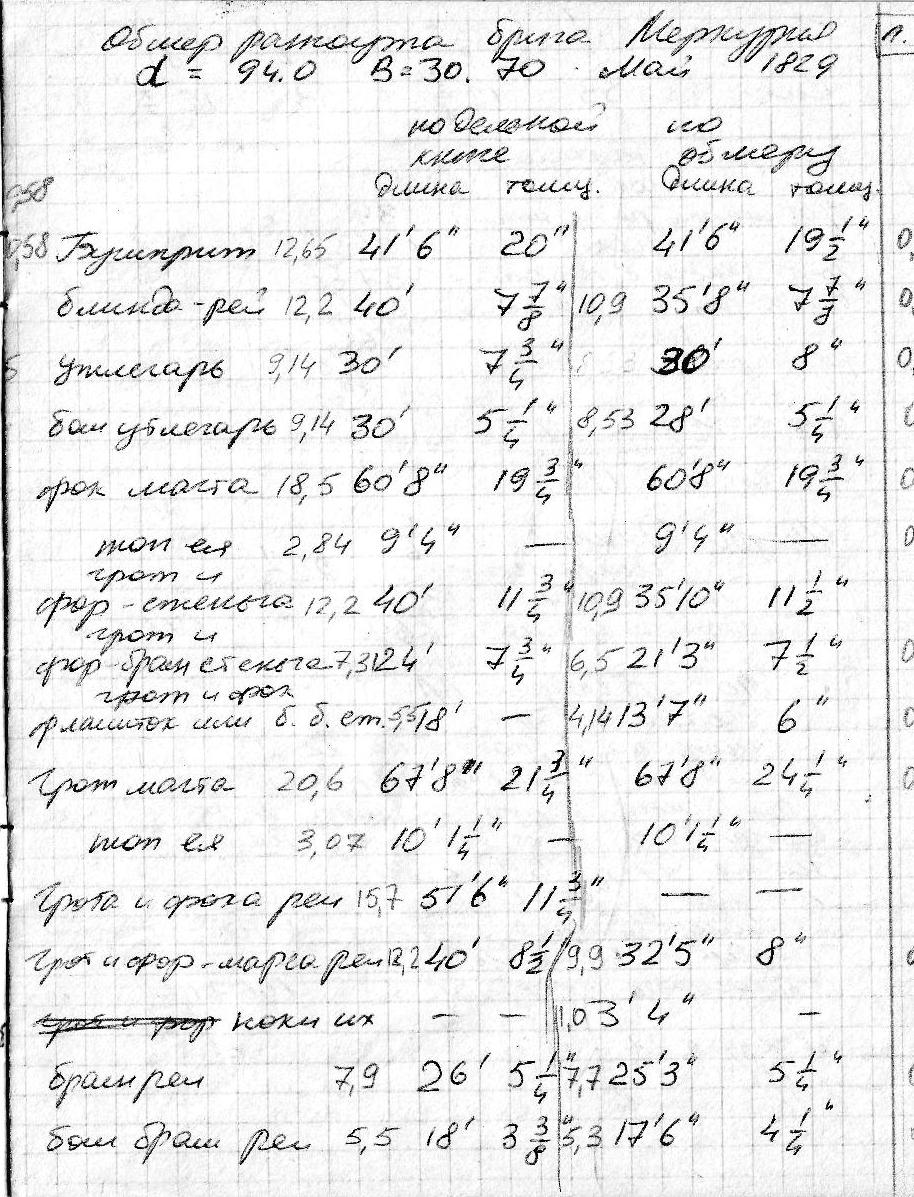 Обмер рангоута брига Меркурий л.
d = 94.0 B = 30.70 Май 1829
по дельной по
книге обмеру
длина толщ. длина толщ.
,58
0,58 Бушприт 12,65 41'6" 20" 41'6" 19 1/2" 0,
блинда-рей 12,2 40' 7 7/8" 10,9 35'8" 7 7/8" 0,
5 утлегарь 9,14 30' 7 3/4" 30' 8" 0,
бом утлегарь 9,14 30' 5 1/4" 8,53 28' 5 1/4"
фок мачта 18,5 60'8" 19 3/4" 60'8" 19 3/4" 0
топ ея 2,84 9'4" — 9'4" — 0
грот и
фор-стеньга 12,2 40' 11 3/4" 10,9 35'10" 11 1/2"
грот и
фор-брамстеньга 7,31 24' 7 3/4" 6,5 21'3" 7 1/2" 0
грот и фок
флагшток или б. б. ст. 5,5 18' — 4,14 13'7" 6" 0
Грот мачта 20,6 67'8" 21 3/4" 67'8" 24 1/4" 0
топ ея 3,07 10' 1 1/4" — 10' 1 1/4" —
Грота и фока реи 15,7 51'6" 11 3/4" — —
Грот и фор-марса реи 12,2 40' 8 1/2 9,9 32'5" 8"
грот и фор ноки их — — 1,0 3'4" —
брам реи 7,9 26' 5 1/4" 7,7 25'3" 5 1/4"
бом брам реи 5,5 18' 3 3/8" 5,3 17'6" 4 1/4"